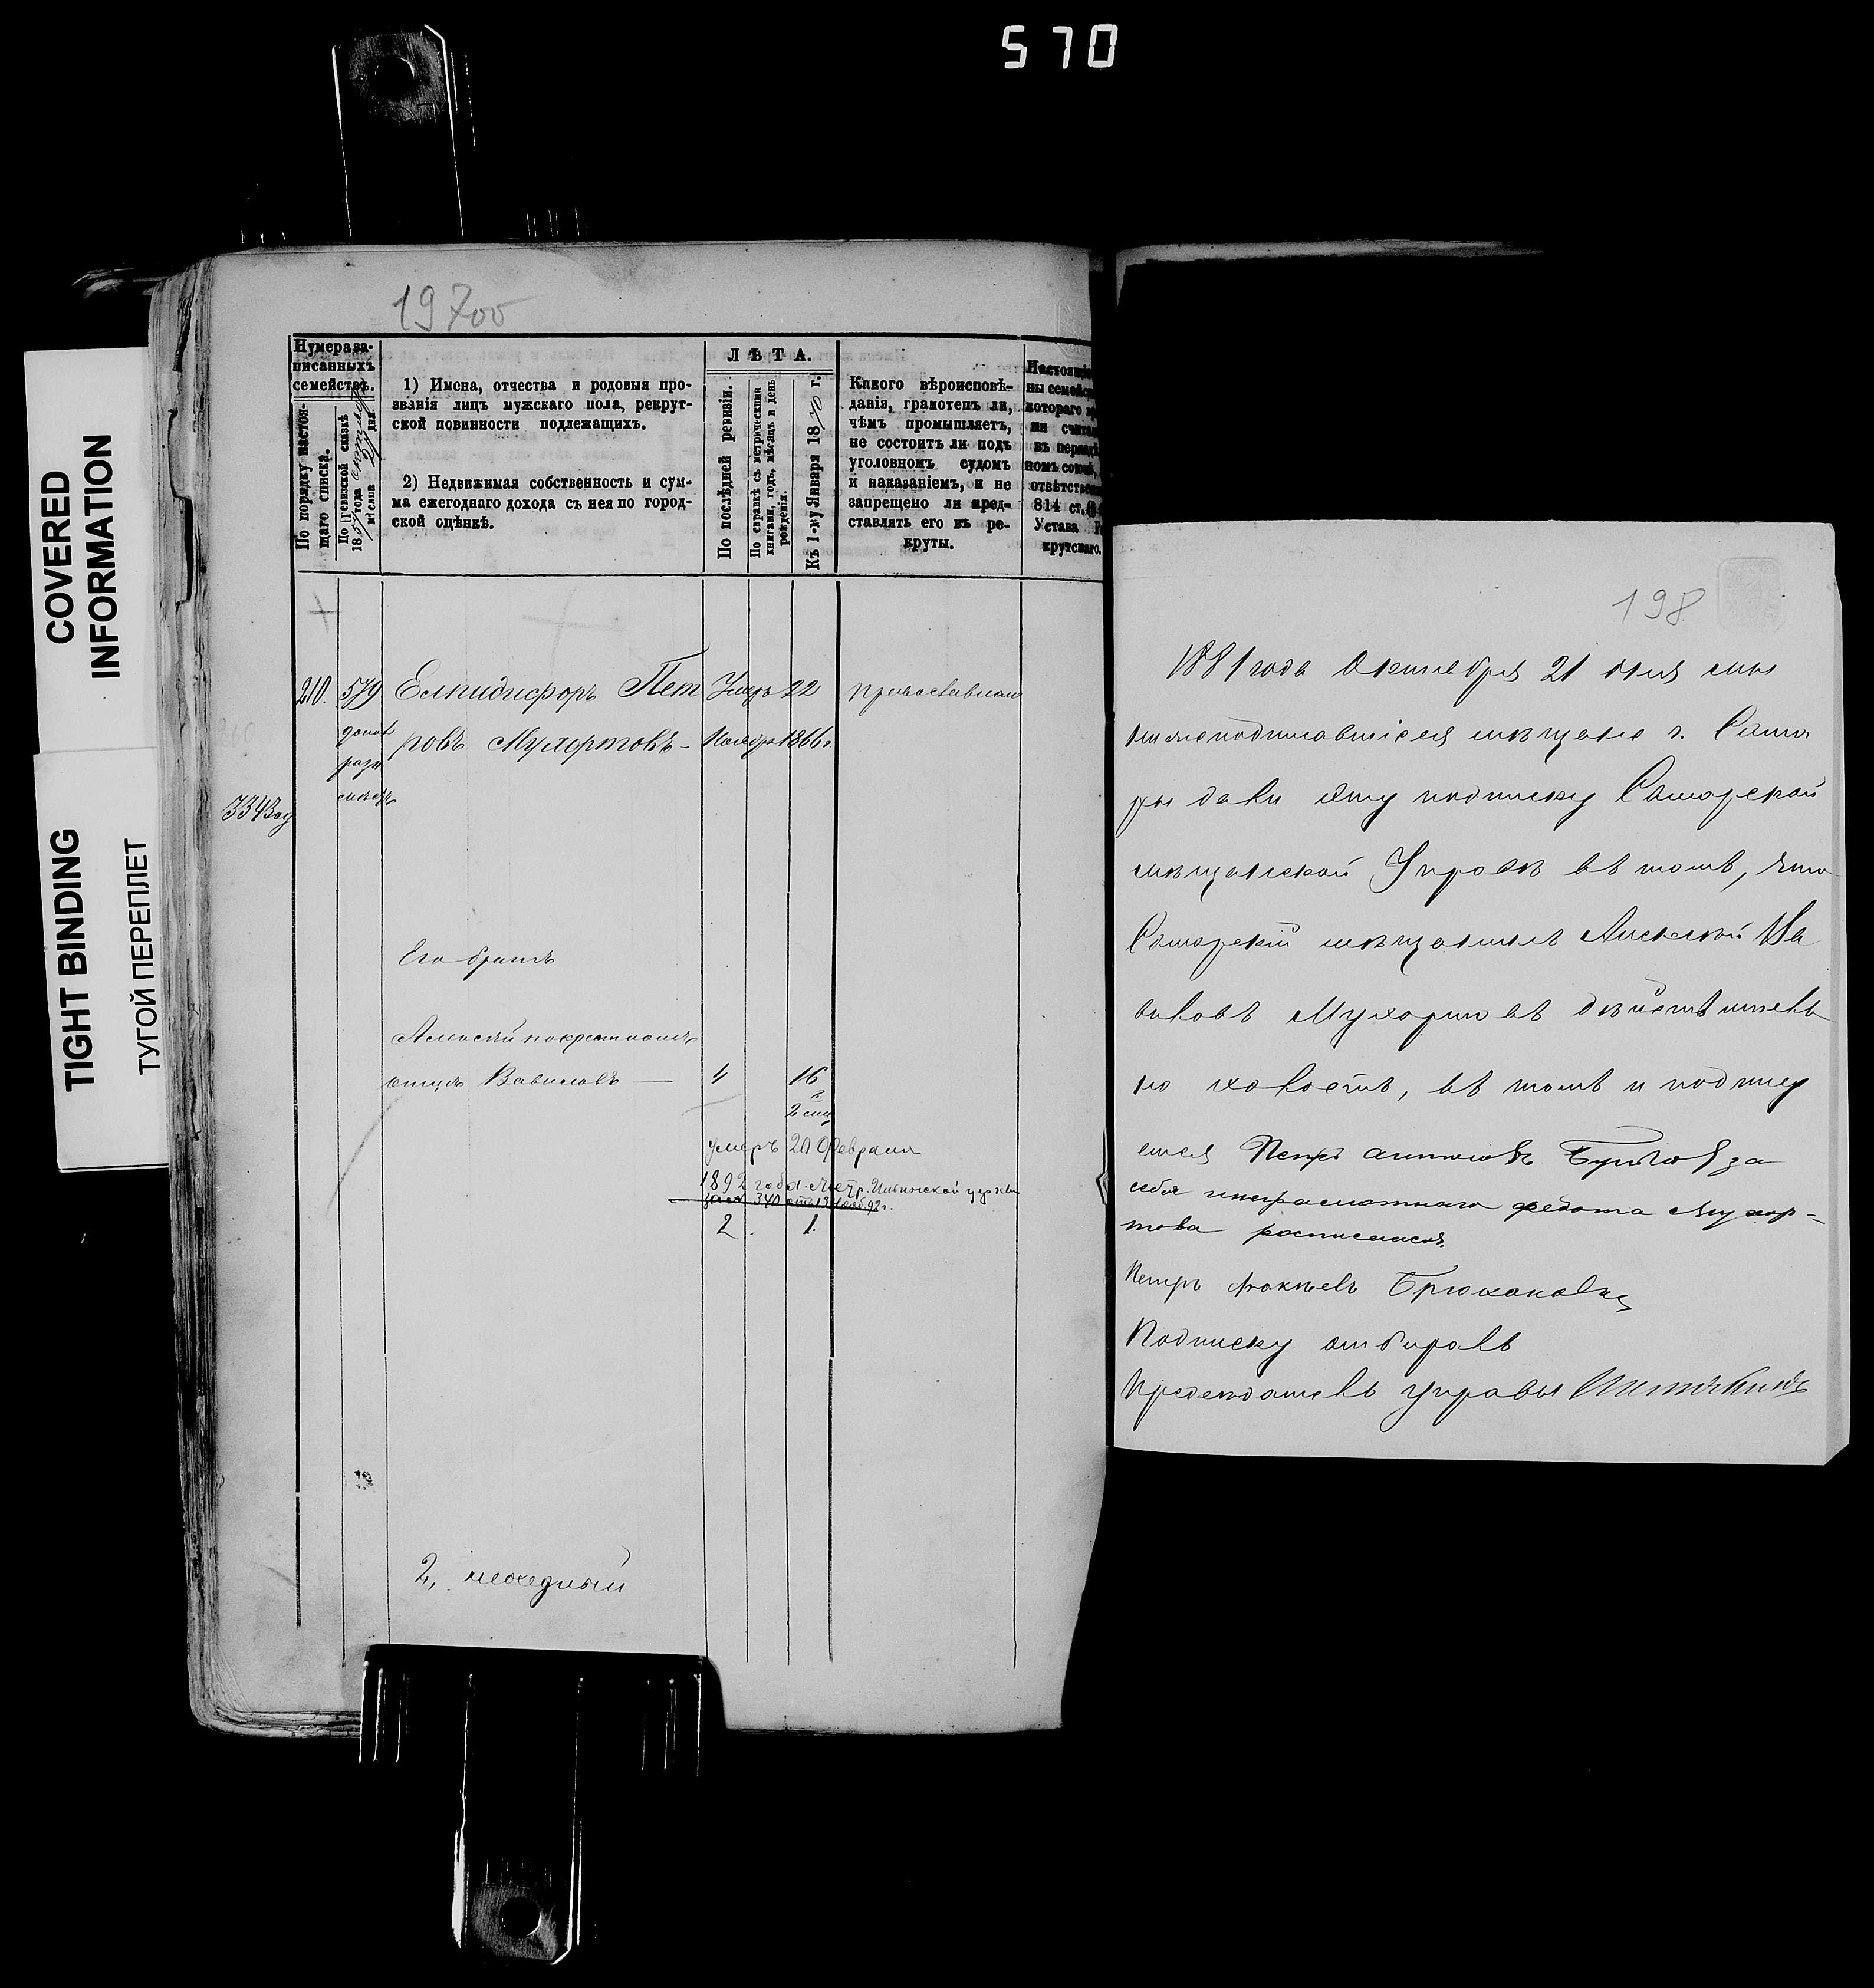 570
COVERED
INFORMATION
TIGHT BINDING
ТУГОЙ ПЕРЕПЛЕТ
197об
Нумера за-
писанныхъ
семействъ.
По порядку настоя-
щаго списка.
По ревизской сказкѣ
1857 года
мѣсяца дня
1) Имена, отчества и родовыя про-
званія лицъ мужскаго пола, рекрут-
ской повинности подлежащихъ.
2) Недвижимая собственность и сум-
ма ежегоднаго дохода съ нея по город-
ской оцѣнкѣ.
ЛѢТА.
По послѣдней ревизіи.
По справкѣ съ метрическими
книгами, годъ, мѣсяцъ и день
рожденія.
Къ 1-му Января 18 г.
Какого вѣроисповѣ-
данія, грамотенъ ли,
чѣмъ промышляетъ,
не состоитъ ли подъ
уголовномъ судомъ
и наказаніемъ, и не
запрещено ли пред-
ставлять его въ ре-
круты.
Настоящі
ны семейс
котораго
ни счита
въ
номъ союзѣ,
отвѣтстве
814 ст.
Устава Р
крутскаго.
210. 579 Елпидифоръ Пет Умеръ 22 православнаго
ровъ Мухортовъ - Ноября 1866 г.
Его братъ
Алексѣй по крестному
отцу Вавиловъ — 4 16
умеръ 20 Февраля
1892 года. Метр. Ильинской церкви
340
2 1.
2, неимущій
198
1881 года Октября 21 дня мы
нижеподписавшіеся мѣщане г. Сама
ры дали сiю подписку Самарской
мѣщанской Управѣ въ томъ, что
Самарскій мѣщанинъ Алексѣй Ва
виловъ Мухортовъ дѣйствитель
но холостъ, въ томъ и подпису
емся Петръ Антоновъ за
себя и неграмотнаго Федота Мухор-
това росписался.
Петръ Фокѣевъ Брюхановъ
Подписку отбиралъ
Предсѣдатель Управы